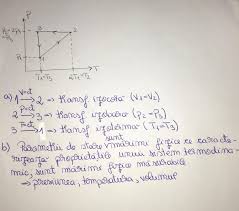 P
2
3
P₁
1
T₁=T₃
T
a) 1 V=ct → 2 ⇒ transf izocora (V₁=V₂)
2 P=ct → 3 ⇒ transf izobara (P₂=P₃)
3 T=ct → 1 ⇒ transf izoterma (T₁=T₃)
sunt
b) Parametrii de stare mărimi fizice ce caracte-
rizează proprietățile unui sistem termodina-
mic, sunt mărimi fizice măsurabile
⇒ presiunea, temperatura, volumul